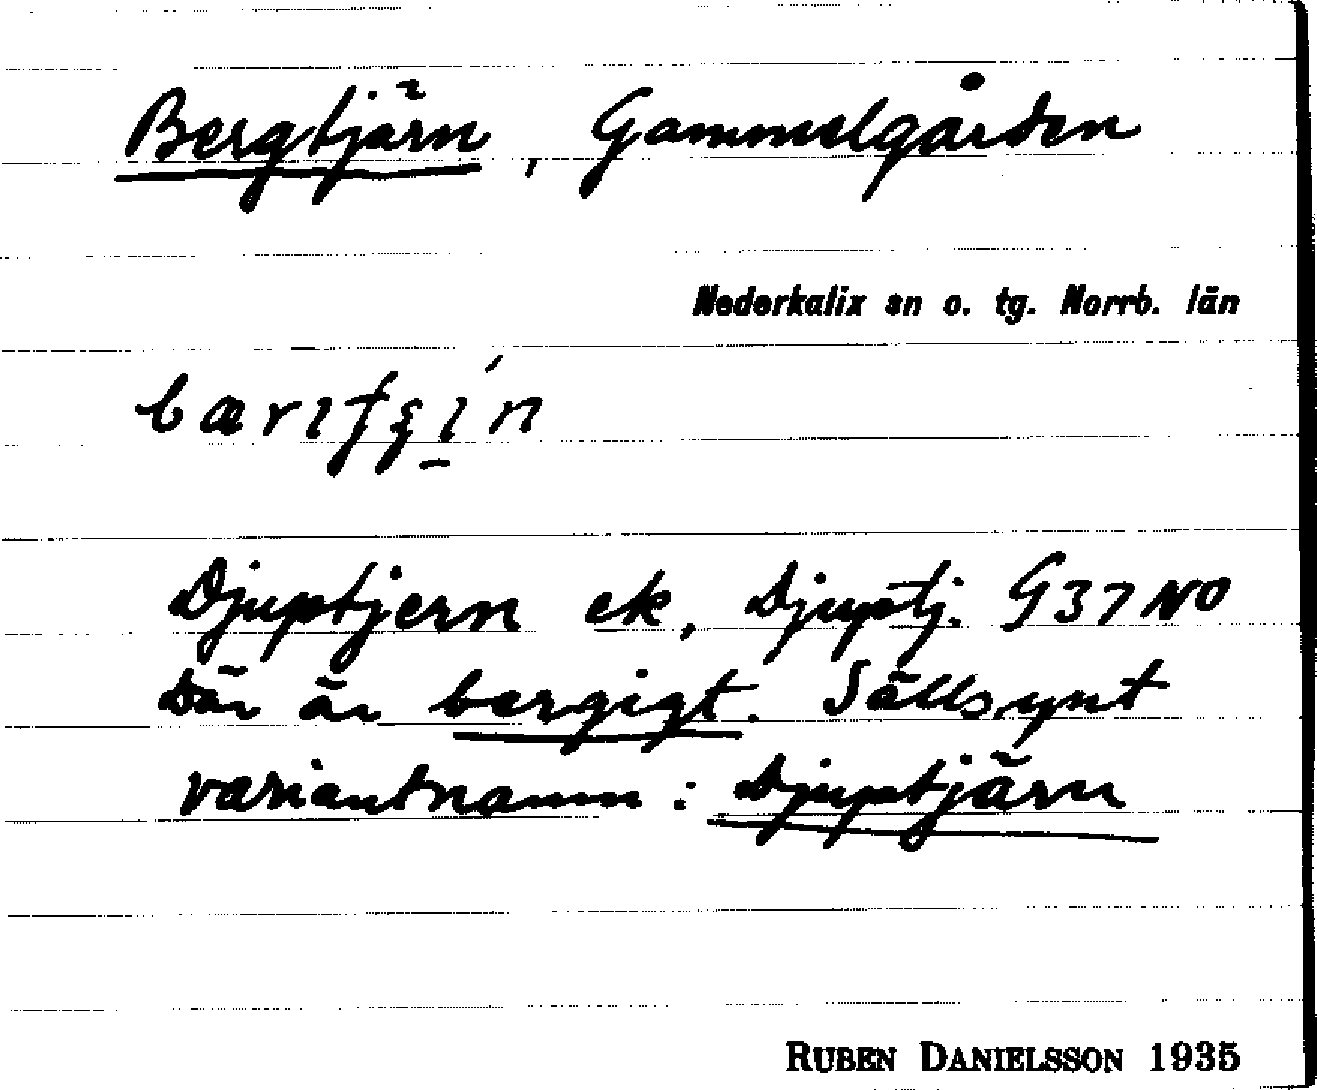 Bergtjärn, Gammelgården
Nederkalix sn o. tg. Norrb. län
Djuptjern ek, Djuptj. G37NO
Där är bergigt. Sällsynt
variantnamn: Djuptjärn
RUBEN DANIELSSON 1935